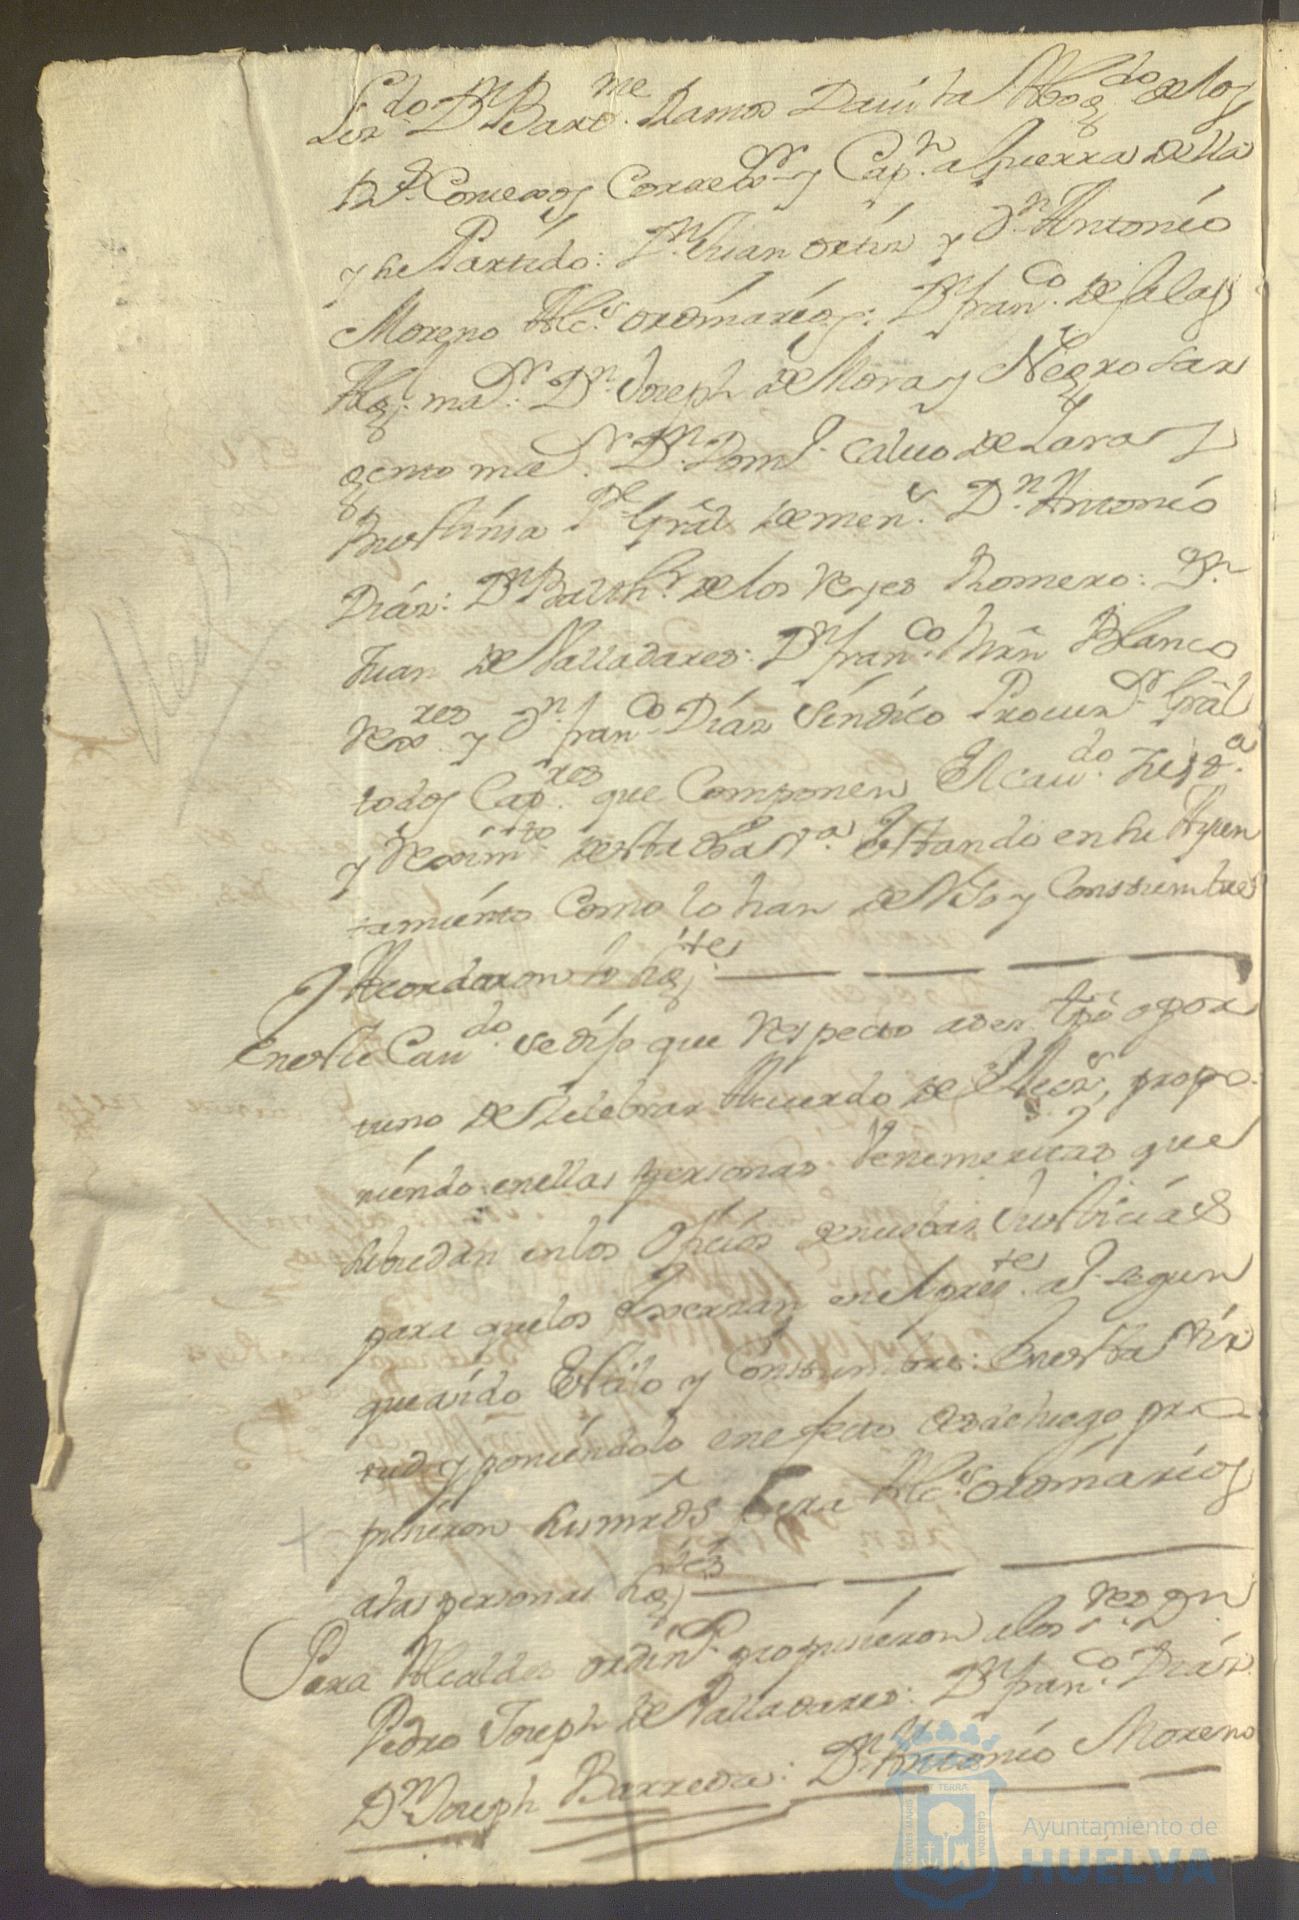 Lizdo Dn Bartme Ramos Dauila Abogdo de los
Rs Consexos Correxor y Capn a Guerra della
y su Partido: Dn Juan Ortiz y Dn Antonio
Moreno Alces ordinarios: Dn Franco de Salas
Algl mar Dn Joseph de Mora y Negro Sar
gento mar Dn Domo Caluo de Lara y
Dn Antonio
Diaz: Dn Balthr de los Reyes Romero: Dn
Juan de Valladares: Dn Franco Mrn Blanco
Rexres y Dn Franco Diaz Sindico Procurdr Gral
todos Capres que Componen El caudo Justa
y Reximto desta dha Va Estando en su Ayun
tamiento Como lo han de Uso y Constumbre
Y Acordaron lo sigte
En este Caudo se dijo que Respecto a ser tpo opor
tuno de Zelebrar Acuerdo de Elecs, propo
niendo en ellas personas Venemeritas que
subzedan en los Ofizios de nuebas Justicias
para que los Exerzan en el preste as segun
queaido Estilo y Constumbre: En esta Vir
tud y poniendolo en efecto desde luego pro
pusieron sus mrds Para Alces ordinarios
a las personas sigtes
Para Alcaldes ordins propusieron a los Sres Dn
Pedro Joseph de Valladares: Dn Franco Diaz
Dn Joseph Barreda: Dn Antonio Moreno
Ayuntamiento de
HUELVA